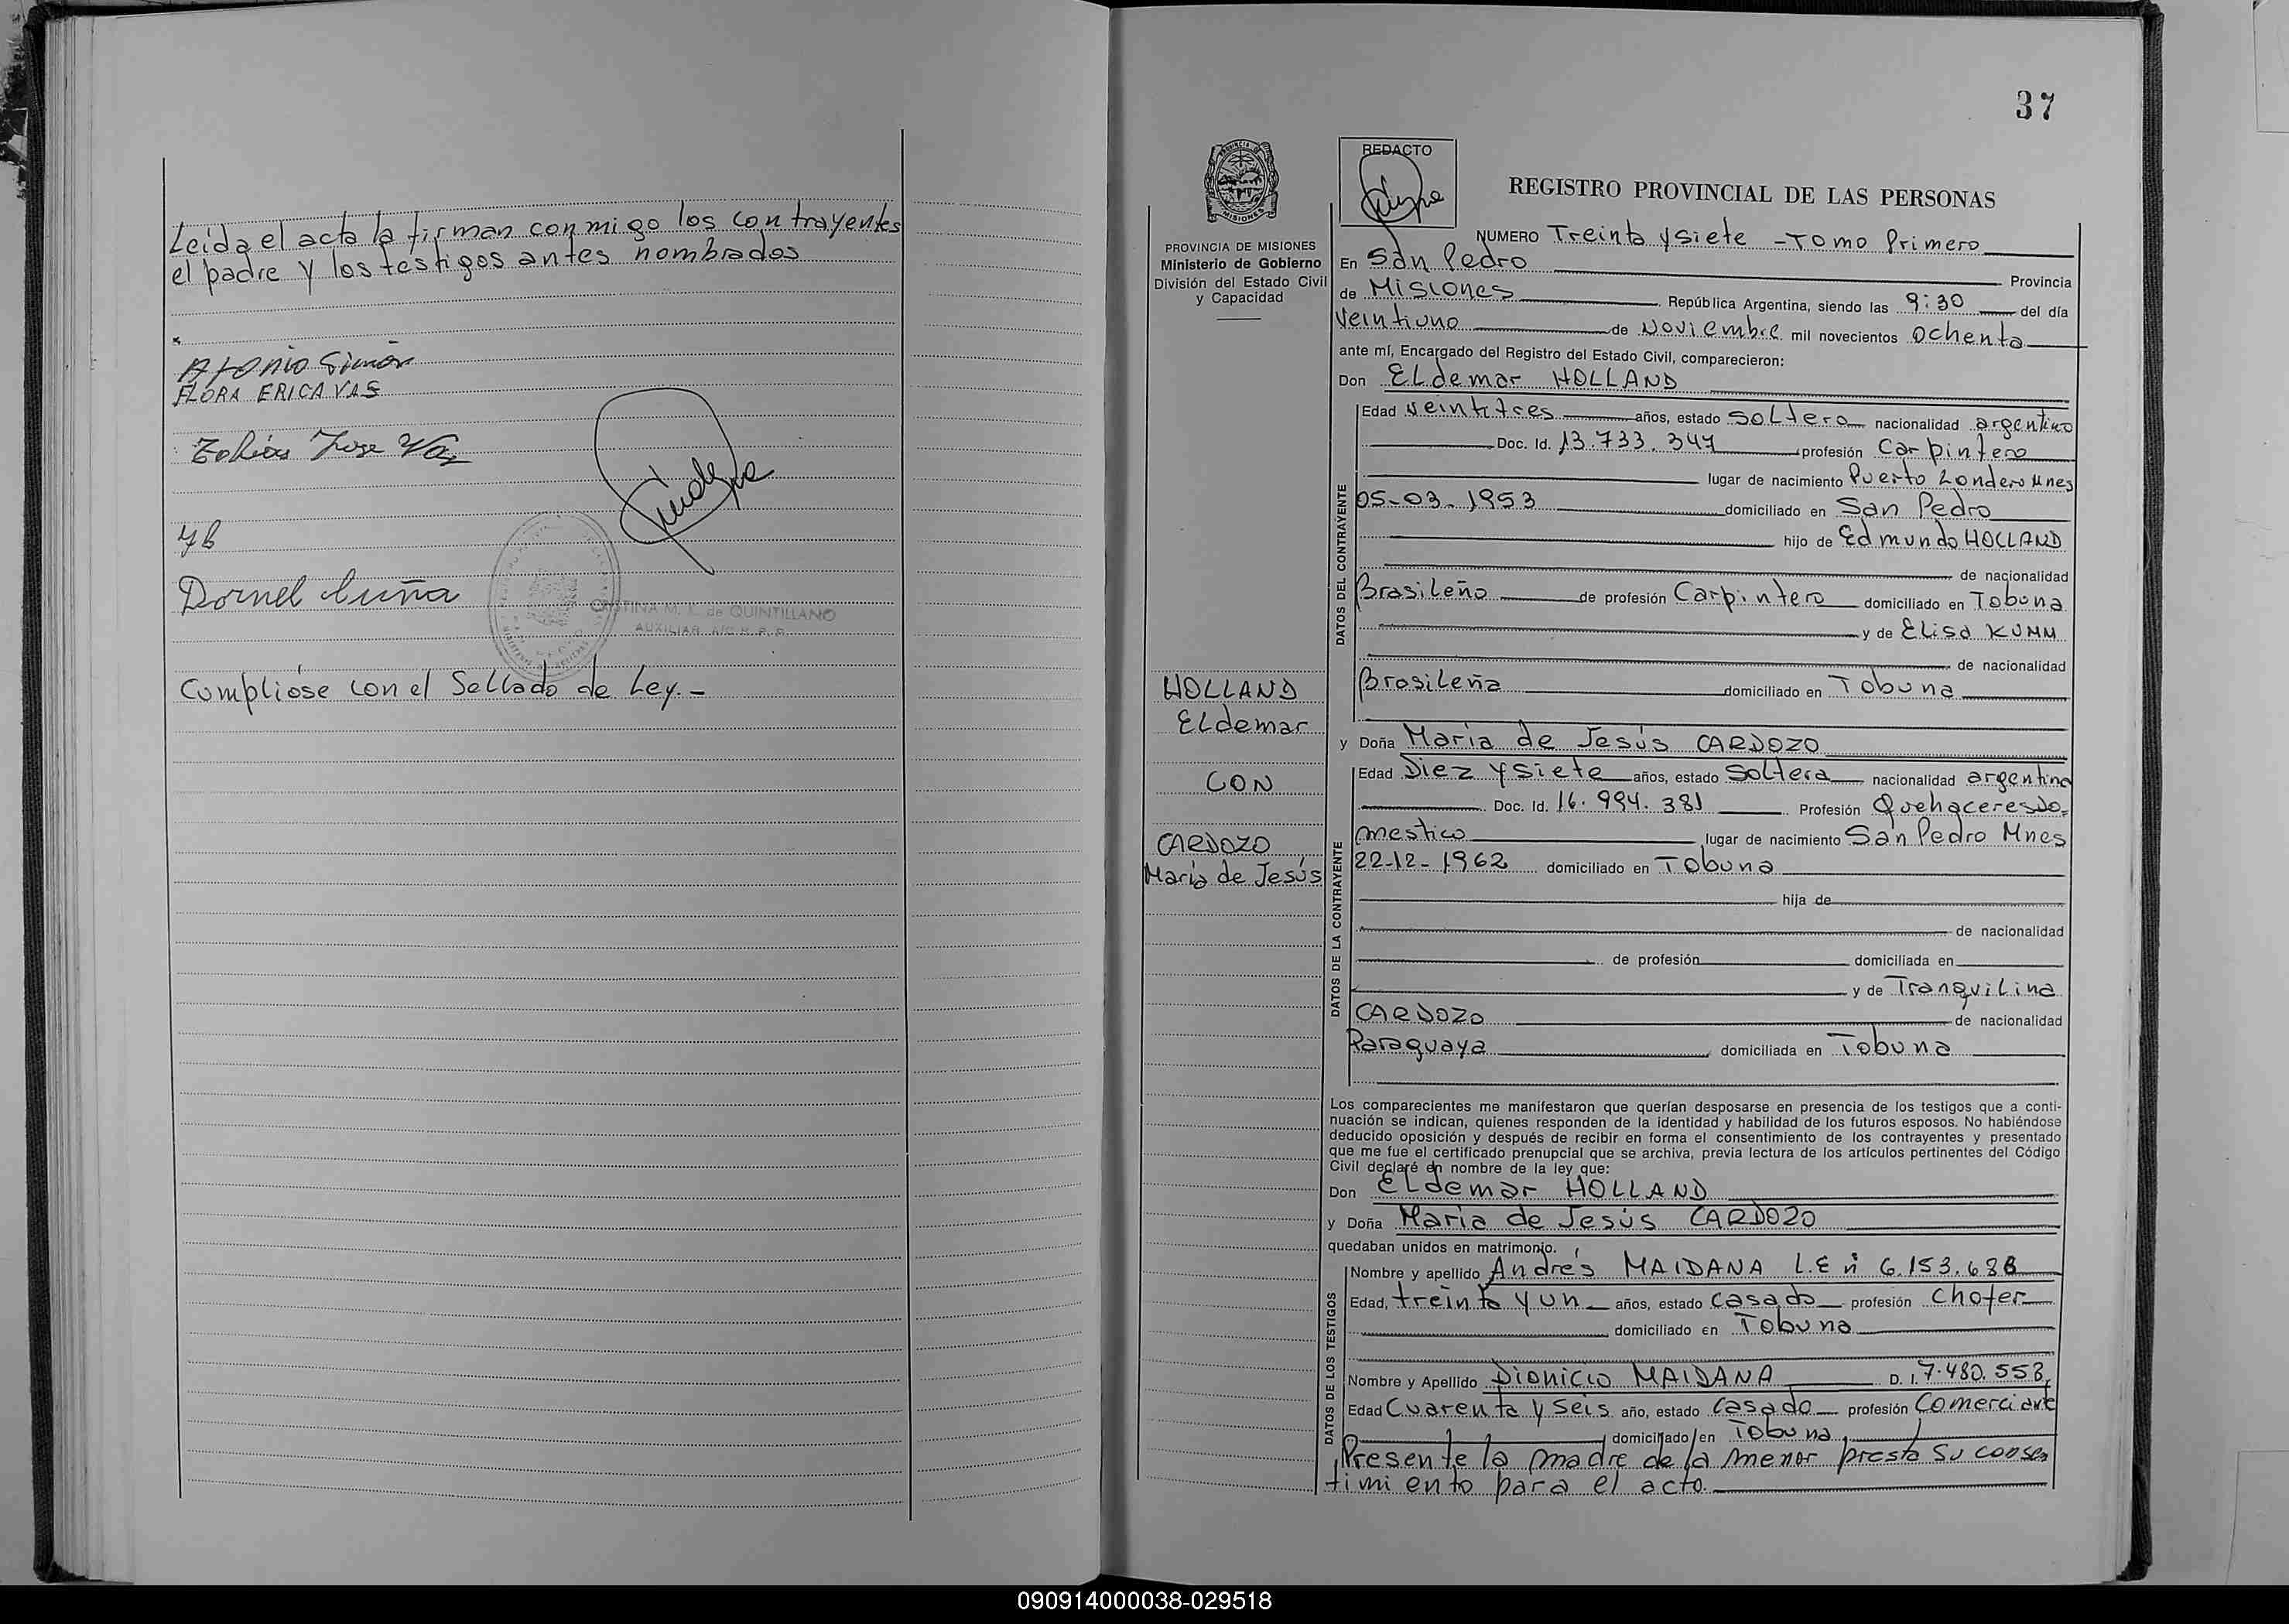 Leída el acta la firman conmigo los contrayentes
el padre y los testigos antes nombrados
Atonio Simon
FLORA ERICA VAS
Tobias Jose Vaz
Dornel Cuña
CRISTINA M. K. de QUINTILLANO
AUXILIAR
Cumplióse con el Sellado de Ley.-
37
PROVINCIA DE MISIONES
Ministerio de Gobierno
División del Estado Civil
y Capacidad
HOLLAND
Eldemar
CON
CARDOZO
María de Jesús
REDACTO
REGISTRO PROVINCIAL DE LAS PERSONAS
NUMERO Treinta y siete - Tomo Primero
En San Pedro
Provincia
de Misiones República Argentina, siendo las 9:30 del día
Veintiuno de Noviembre mil novecientos Ochenta
ante mí, Encargado del Registro del Estado Civil, comparecieron:
Don Eldemar HOLLAND
DATOS DEL CONTRAYENTE
Edad veintitres años, estado Soltero nacionalidad argentino
Doc. Id. 13.733.347 profesión Carpintero
lugar de nacimiento Puerto Londero Mnes
05-03-1953 domiciliado en San Pedro
hijo de Edmundo HOLLAND
de nacionalidad
Brasileño de profesión Carpintero domiciliado en Tobuna
y de Elisa KUMM
de nacionalidad
Brasileña domiciliado en Tobuna
y Doña María de Jesús CARDOZO
DATOS DE LA CONTRAYENTE
Edad Diez y siete años, estado Soltera nacionalidad argentina
Doc. Id. 16.994.381 Profesión Quehaceres Do-
mestico lugar de nacimiento San Pedro Mnes
22-12-1962 domiciliado en Tobuna
hija de
de nacionalidad
de profesión domiciliada en
y de Tranquilina
CARDOZO de nacionalidad
Paraguaya domiciliada en Tobuna
Los comparecientes me manifestaron que querían desposarse en presencia de los testigos que a conti-
nuación se indican, quienes responden de la identidad y habilidad de los futuros esposos. No habiéndose
deducido oposición y después de recibir en forma el consentimiento de los contrayentes y presentado
que me fue el certificado prenupcial que se archiva, previa lectura de los artículos pertinentes del Código
Civil declaré en nombre de la ley que:
Don Eldemar HOLLAND
y Doña María de Jesús CARDOZO
quedaban unidos en matrimonio.
DATOS DE LOS TESTIGOS
Nombre y apellido Andrés MAIDANA L.E n 6.153.688
Edad, treinta y un años, estado Casado profesión Chofer
domiciliado en Tobuna
Nombre y Apellido Dionicio MAIDANA D. I. 7.480.553
Edad Cuarenta y Seis año, estado Casado profesión Comerciante
domiciliado en Tobuna
Presente la madre de la menor presta su consen
timiento para el acto.
090914000038-029518